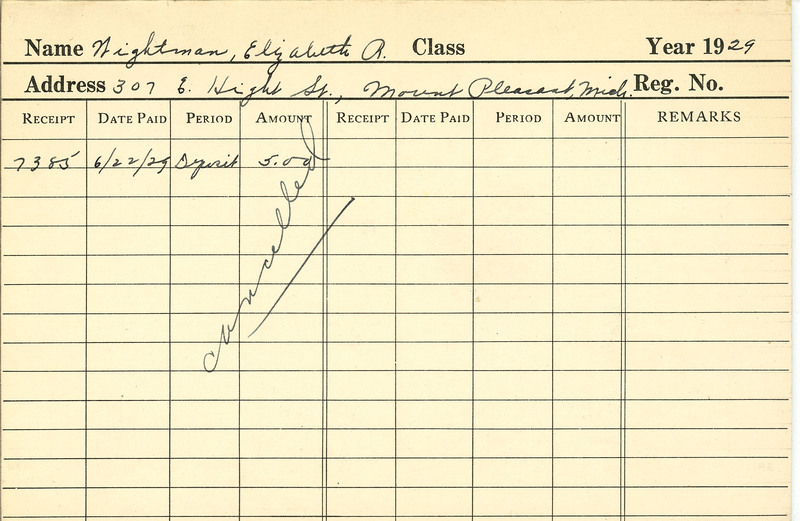 Name Wightman, Elizabeth R. Class Year 1929
Address 307 E. Hight St., Mount Pleasant, Mich. Reg. No.
RECEIPT DATE PAID PERIOD AMOUNT RECEIPT DATE PAID PERIOD AMOUNT REMARKS
7385 6/22/29 Deposit 5.00
Cancelled